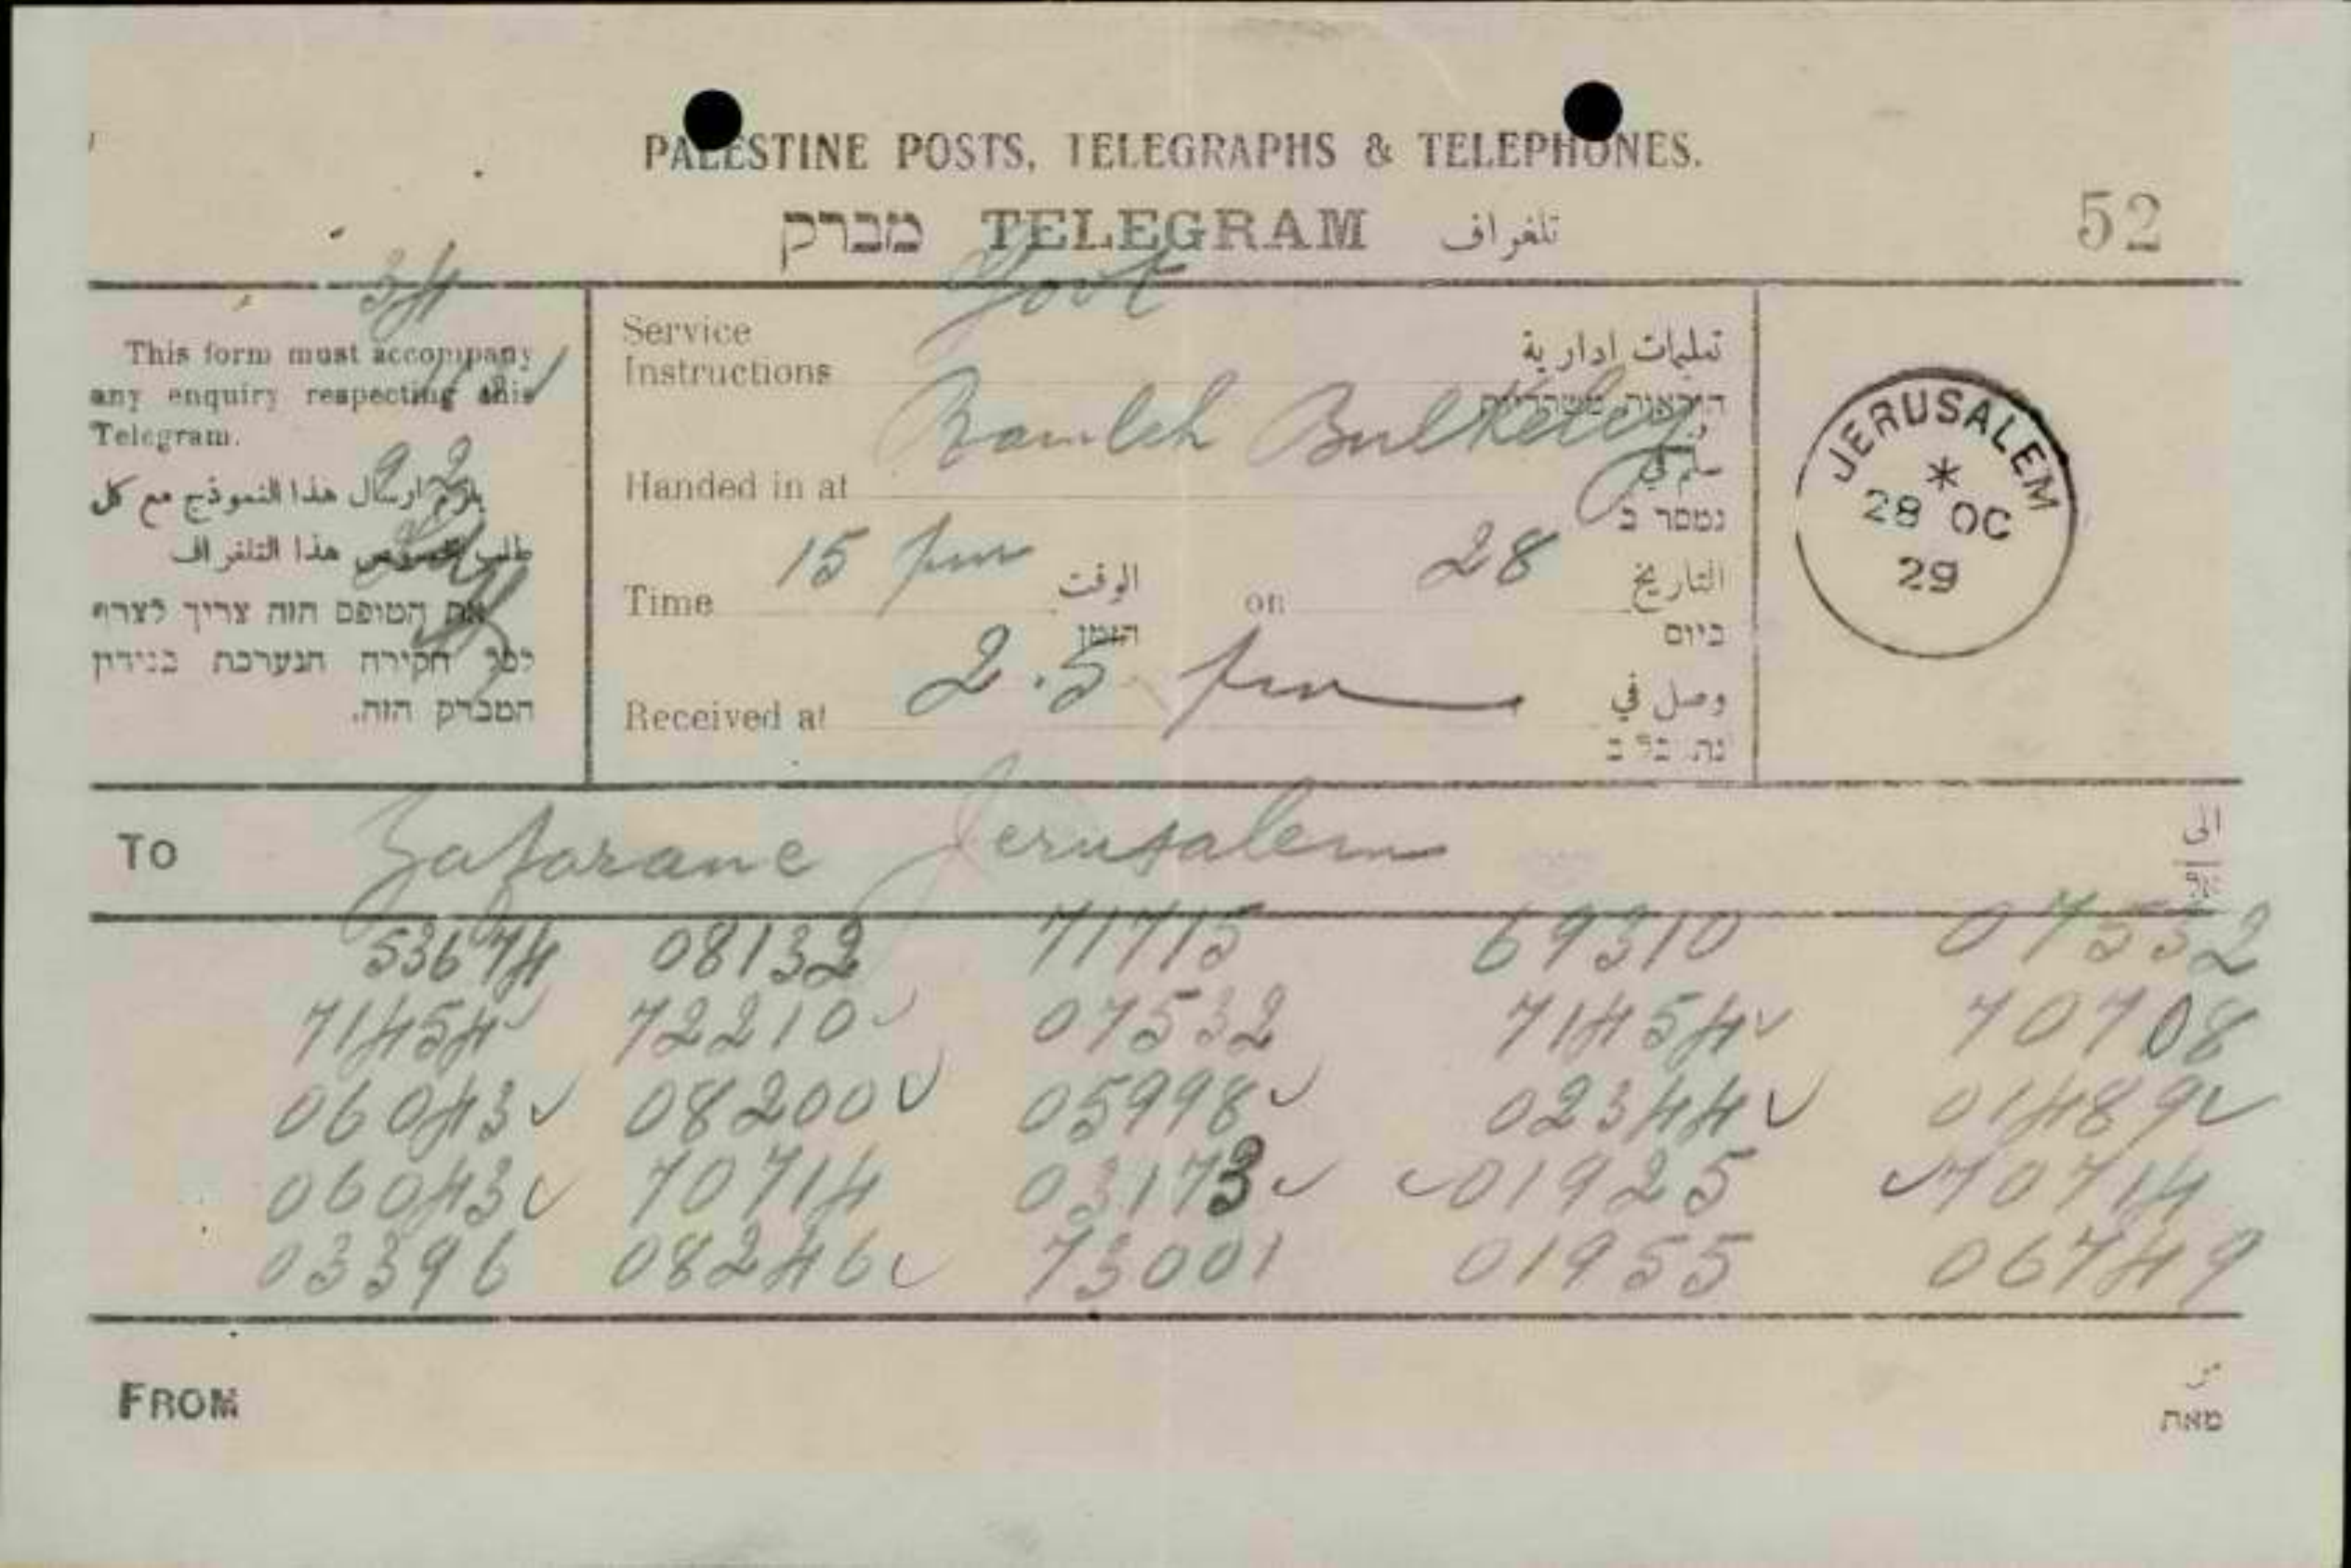 PALESTINE POSTS, TELEGRAPHS & TELEPHONES.
מברק TELEGRAM تلغراف
52
34
Govt
This form must accompany
any enquiry respecting this
Telegram.
يلزم ارسال هذا النموذج مع كل
طلب بخصوص هذا التلغراف
את הטופס הזה צריך לצרף
לכל חקירה הנערכת בנידון
המברק הזה.
Service
Instructions
تعليمات ادارية
הוראות משרדיות
Handed in at Ramleh Bulkeley
سلم في
נמסר ב
Time 15 pm الوقت on 28 التاريخ
הזמן ביום
Received at 2.5 pm وصل في
JERUSALEM
28 OC
29
To Zafarane Jerusalem الى
53674 08132 71715 69310 07532
71454 72210 07532 71454 70708
06043 08200 05998 02344 01489
06043 70714 03173 01925 70714
03396 08246 73001 01955 06749
FROM من
מאת